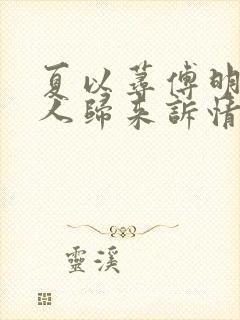 夏以蕁傅明
人歸來訴情
靈溪